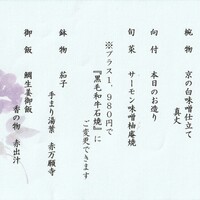 椀物 京の白味噌仕立て
真丈
向付 本日のお造り
旬菜 サーモン味噌柚庵焼
※プラス1,980円で
『黒毛和牛石焼』に
ご変更できます
鉢物 茄子
手まり湯葉 赤万願寺
御飯 鯛生姜御飯
香の物 赤出汁